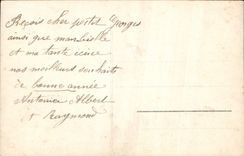 Reçois cher petit Georges
ainsi que
et ma tante
nos meilleurs souhaits
de bonne année
Antonin Albert
et Raymond